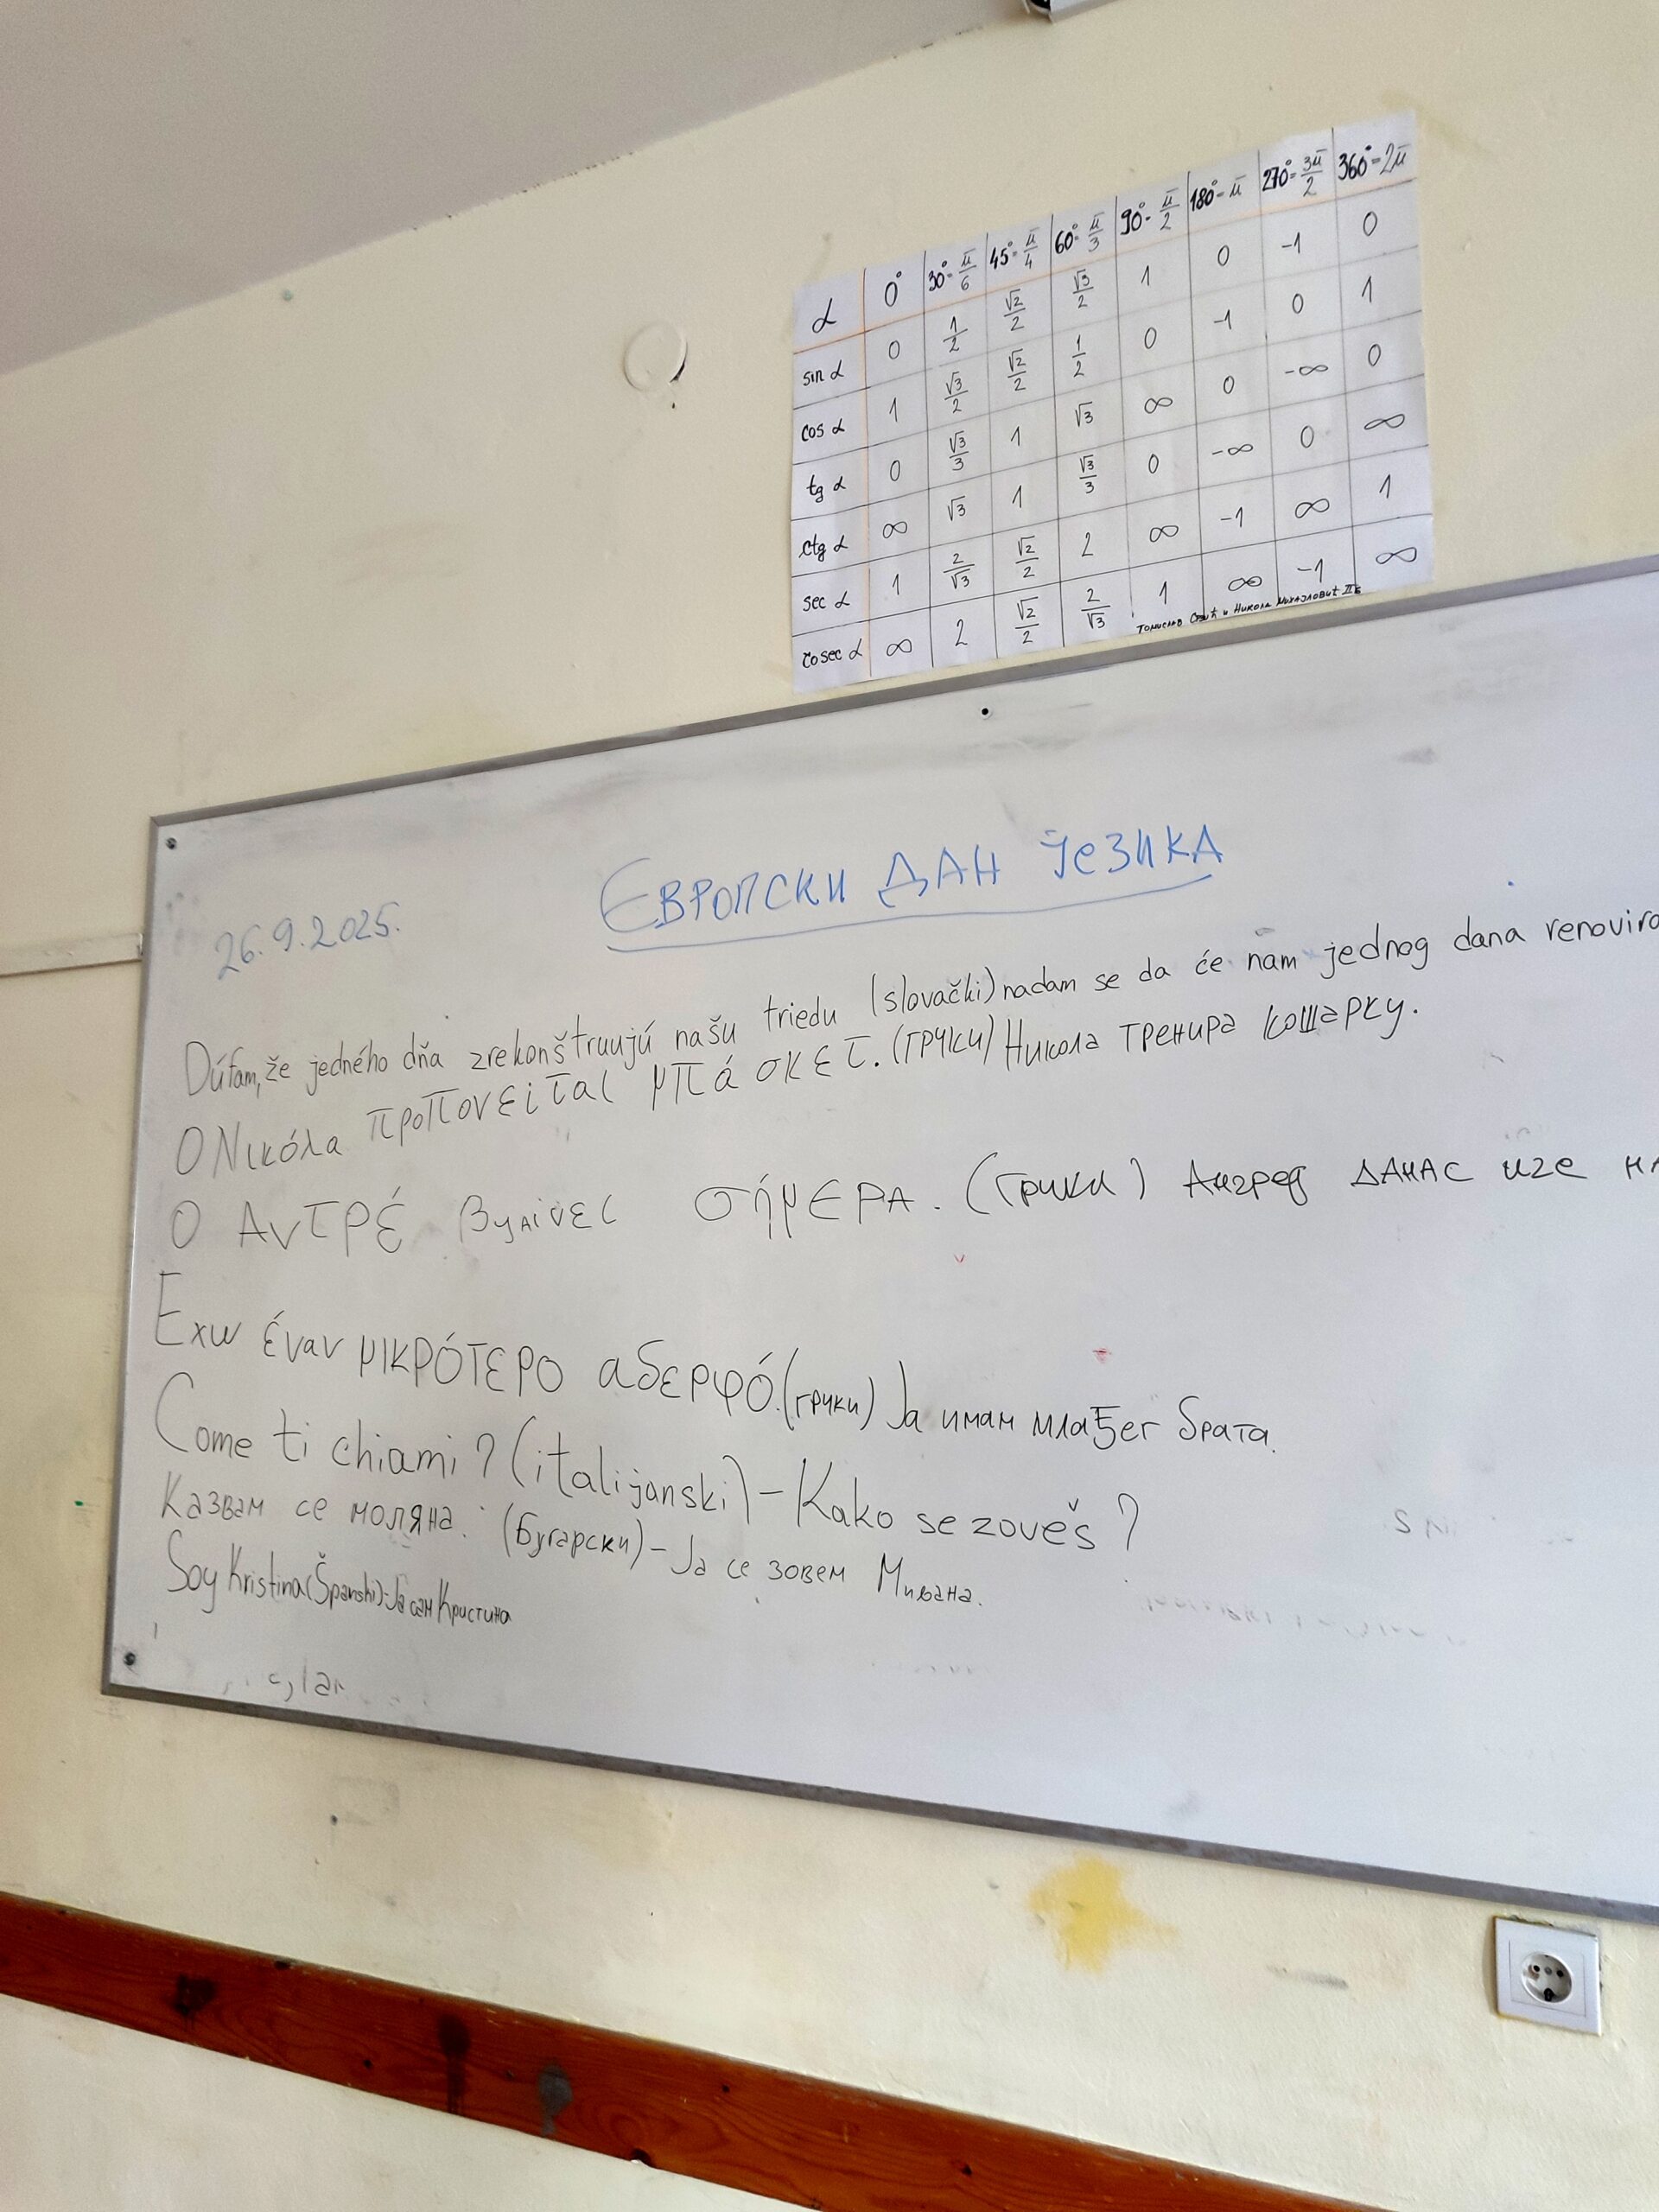 α 0° 30°=π/6 45°=π/4 60°=π/3 90°=π/2 180°=π 270°=3π/2 360°=2π
sin α 0 1/2 √2/2 √3/2 1 0 -1 0
cos α 1 √3/2 √2/2 1/2 0 -1 0 1
tg α 0 √3/3 1 √3 ∞ 0 -∞ 0
ctg α ∞ √3 1 √3/3 0 -∞ 0 ∞
sec α 1 2/√3 √2/2 2 ∞ -1 ∞ 1
cosec α ∞ 2 √2/2 2/√3 1 ∞ -1 ∞
Томислав и Никола Михајловић
ЕВРОПСКИ ДАН ЈЕЗИКА
26.9.2025.
Dúfam, že jedného dňa zrekonštruujú našu triedu (slovački) nadam se da će nam jednog dana
Ο Νικόλα προπονείται μπάσκετ. (грчки) Никола тренира кошарку.
Ο Αντρέ σήμερα. (грчки) данас иде
Εχω έναν μικρότερο αδερφό. (грчки) Ја имам млађег брата.
Come ti chiami? (italijanski) - Kako se zoveš?
Казвам се моляна. (Бугарски) - Ја се зовем
Soy Kristina (Španski) - Ја сам Кристина